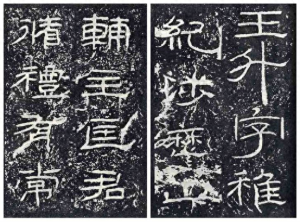 王升字稚
紀涉歷山
輔主匡君
循禮有常